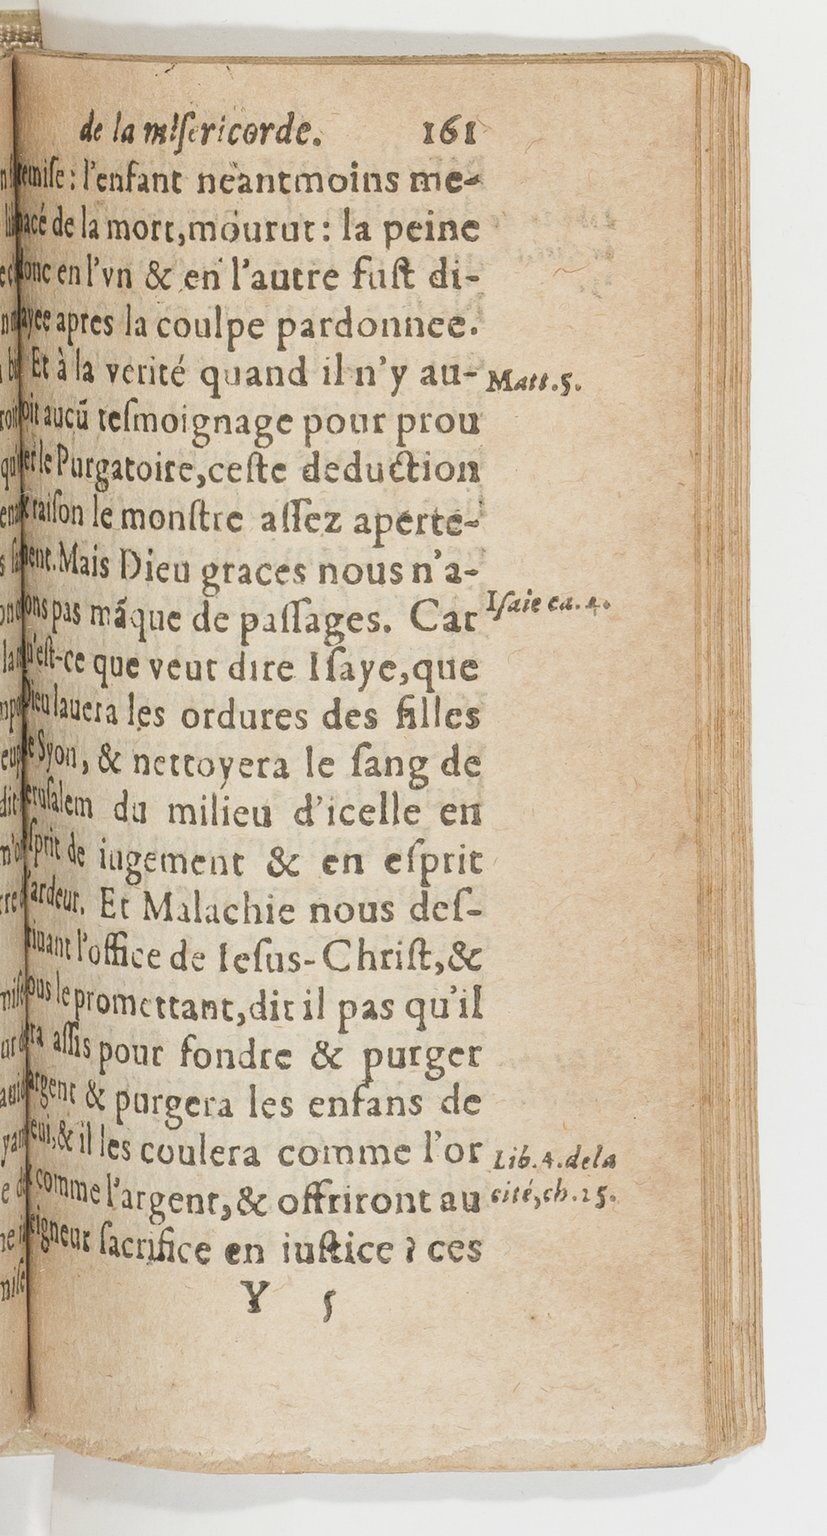 de la misericorde. 161
remise: l'enfant neantmoins me-
nacé de la mort, mourut: la peine
donc en l'vn & en l'autre fust di-
layee apres la coulpe pardonnee.
Et à la verité quand il n'y au-
Matt.5.
oit aucũ tesmoignage pour prou
er le Purgatoire, ceste deduction
raison le monstre assez aperte-
ment. Mais Dieu graces nous n'a-
ons pas mãque de passages. Car
Isaie ca. 4.
qu'est-ce que veut dire Isaye, que
Dieu lauera les ordures des filles
de Syon, & nettoyera le sang de
Ierusalem du milieu d'icelle en
esprit de iugement & en esprit
d'ardeur. Et Malachie nous des-
tinant l'office de Iesus-Christ, &
nous le promettant, dit il pas qu'il
sera assis pour fondre & purger
l'argent & purgera les enfans de
Leui, & il les coulera comme l'or
Lib.4.dela
comme l'argent, & offriront au
cité, ch.25.
Seigneur sacrifice en iustice? ces
Y 5